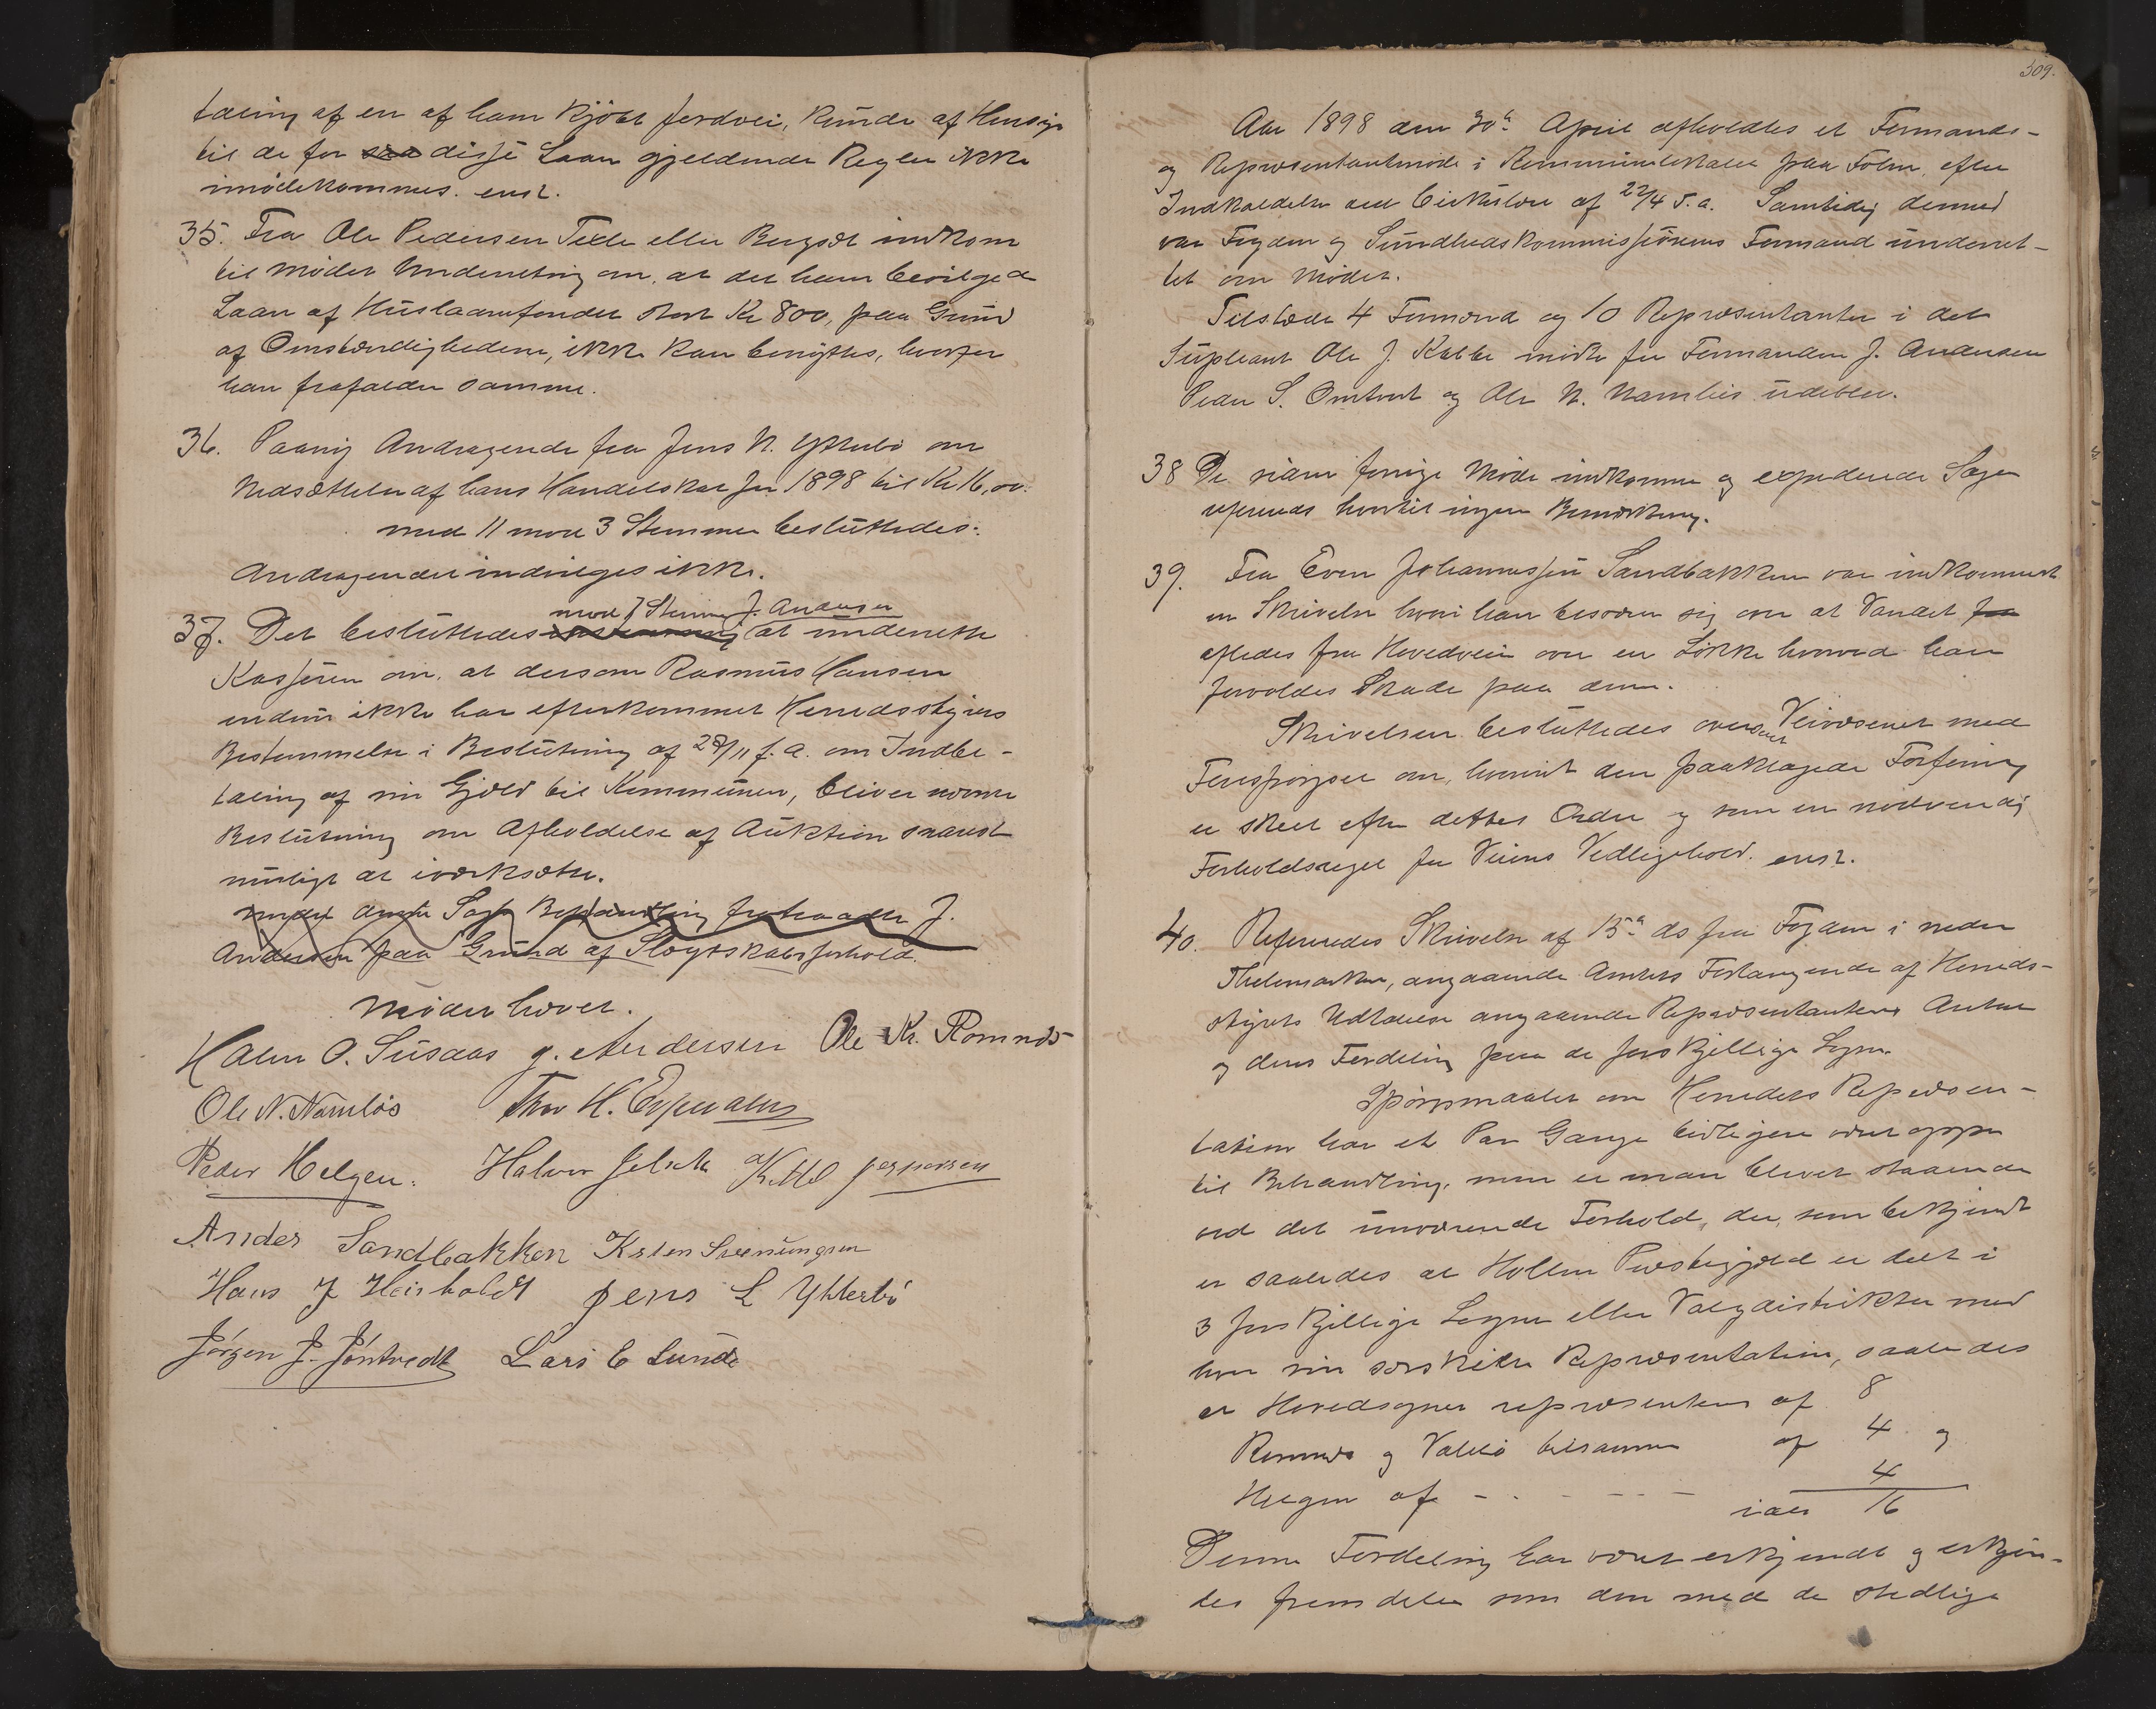 taling af en af ham kjöbt Jordvei, kunde af Hensyn
til de for saa disse Laan gjeldende Regler ikke
imödekommes. enst.
35. Fra Ole Pedersen Texle eller Bergsdt indkom
til Mödet Underretning om, at det ham bevilgede
Laan af Huslaanfondet stort Kr 800, paa Grund
af Omstændighederne, ikke kan benyttes, hvorfor
han frafalder samme.
36. Paany Andragende fra Jens N. Ytterbö om
Nedsættelse af hans Handelskat for 1898 til Kr 16,00.
med 11 mod 3 Stemmer besluttedes:
Andragendet indvilges ikke.
mod 1 Stemme J. Andersen
37. Det besluttedes enstemmig at underrette
Kasseren om, at dersom Rasmus Hansen
endnu ikke har efterkommet Herredsstyrets
Bestemmelse i Beslutning af 28/11 f. a. om Indbe-
taling af sin Gjæld til Kommunen, bliver nævnte
Beslutning om Afholdelse af Auktion snarest
muligt at iværksætte.
under denne Sags Behandling fratraadte J.
Andersen paa Grund af Slægtskabsforhold.
Mödet hævet.
Halvor O. Susaas J. Andersen Ole Kr. Romnes
Ole N. Namlös Thor H.
Peder Helgen. Halvor Kittil Jespersen
Anders Sandbakken Kristen Sveinungsen
Hans J Heisholdt Jens L Ytterbö
Jörgen J. Jöntvedt Lars C Lunde
309.
Aar 1898 den 30te April afholdtes et Formands-
og Repræsentantmöde i Kommunelokalet paa Folm, efter
Indkaldelse ved Cirkulære af 22/4 d. a. Samtidig dermed
var Fogden og Sundhedskommissionens Formand underret-
tet om Mödet.
Tilstede 4 Formænd og 10 Repræsentanter i det
Supleant Ole J. Kabbe mödte for Formanden J. Andersen
Peder S. Omtvedt og Ole N. Namlös udeblev.
38 De siden forrige Möde indkomne og expederede Sager
refereredes hvortil ingen Bemærkning.
39. Fra Even Johannessen Sandbakken var indkommet
en Skrivelse hvori han besværer sig over at Vandet fra
afledes fra Hovedveien over en Lökke hvorved han
forvoldes Skade paa denne.
Skrivelsen besluttedes oversendt Veivæsenet med
Forespörgsel om, hvorvidt den paaklagede Forføining
er skeet efter dettes Ordre og som en nödvendig
Forholdsregel for Veiens Vedligehold. enst.
40. Refereredes Skrivelse af 15de ds fra Fogden i nedre
Thelemarken, angaaende Amtets Forlangende af Herreds-
styrets Udtalelse angaaende Repræsentanternes Antal
og deres Fordeling paa de forskjellige Sogne.
Spörgsmaalet om Herredets Repræsen-
tation har et Par Gange tidligere været oppe
til Behandling, men er man blevet staaende
ved det nuværende Forhold, der, som bekjendt
er saaledes at Hollen Præstegjeld er delt i
3 forskjellige Sogne eller Valgdistrikter med
hver sin særskilte Repræsentation, saaledes
at Hovedsognet repræsenteres af 8
Romnes og Valebö tilsammen af 4 og
Helgen af - - - - - - 4
ialt 16
Denne Fordeling har været erkjendt og erkjen-
des fremdeles som den med de stedlige